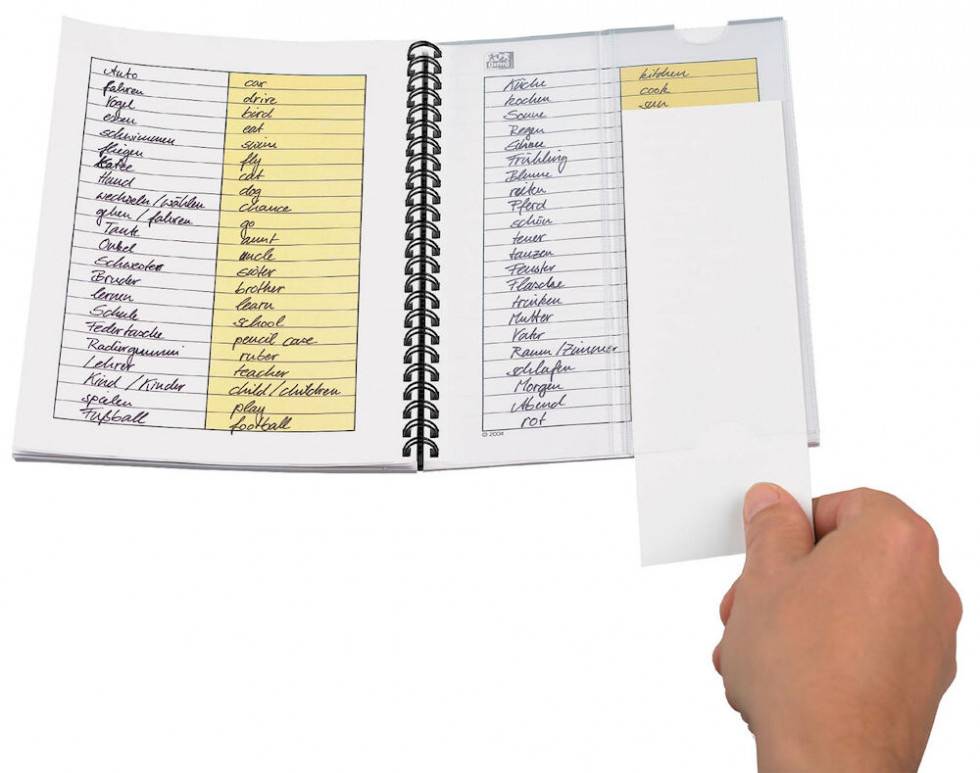 Auto car
fahren drive
Vogel bird
essen eat
schwimmen swim
fliegen fly
Katze cat
Hund dog
wechseln/wählen chance
gehen / fahren go
Tante aunt
Onkel uncle
Schwester sister
Bruder brother
lernen learn
Schule school
Federtasche pencil case
Radiergummi ruber
Lehrer teacher
Kind / Kinder child / children
spielen play
Fußball football
Oxford
Küche kitchen
kochen cook
Sonne sun
Regen
Schnee
Frühling
Blume
reiten
Pferd
schön
teuer
tanzen
Fenster
Flasche
trinken
Mutter
Vater
Raum / Zimmer
schlafen
Morgen
Abend
rot
© 2004